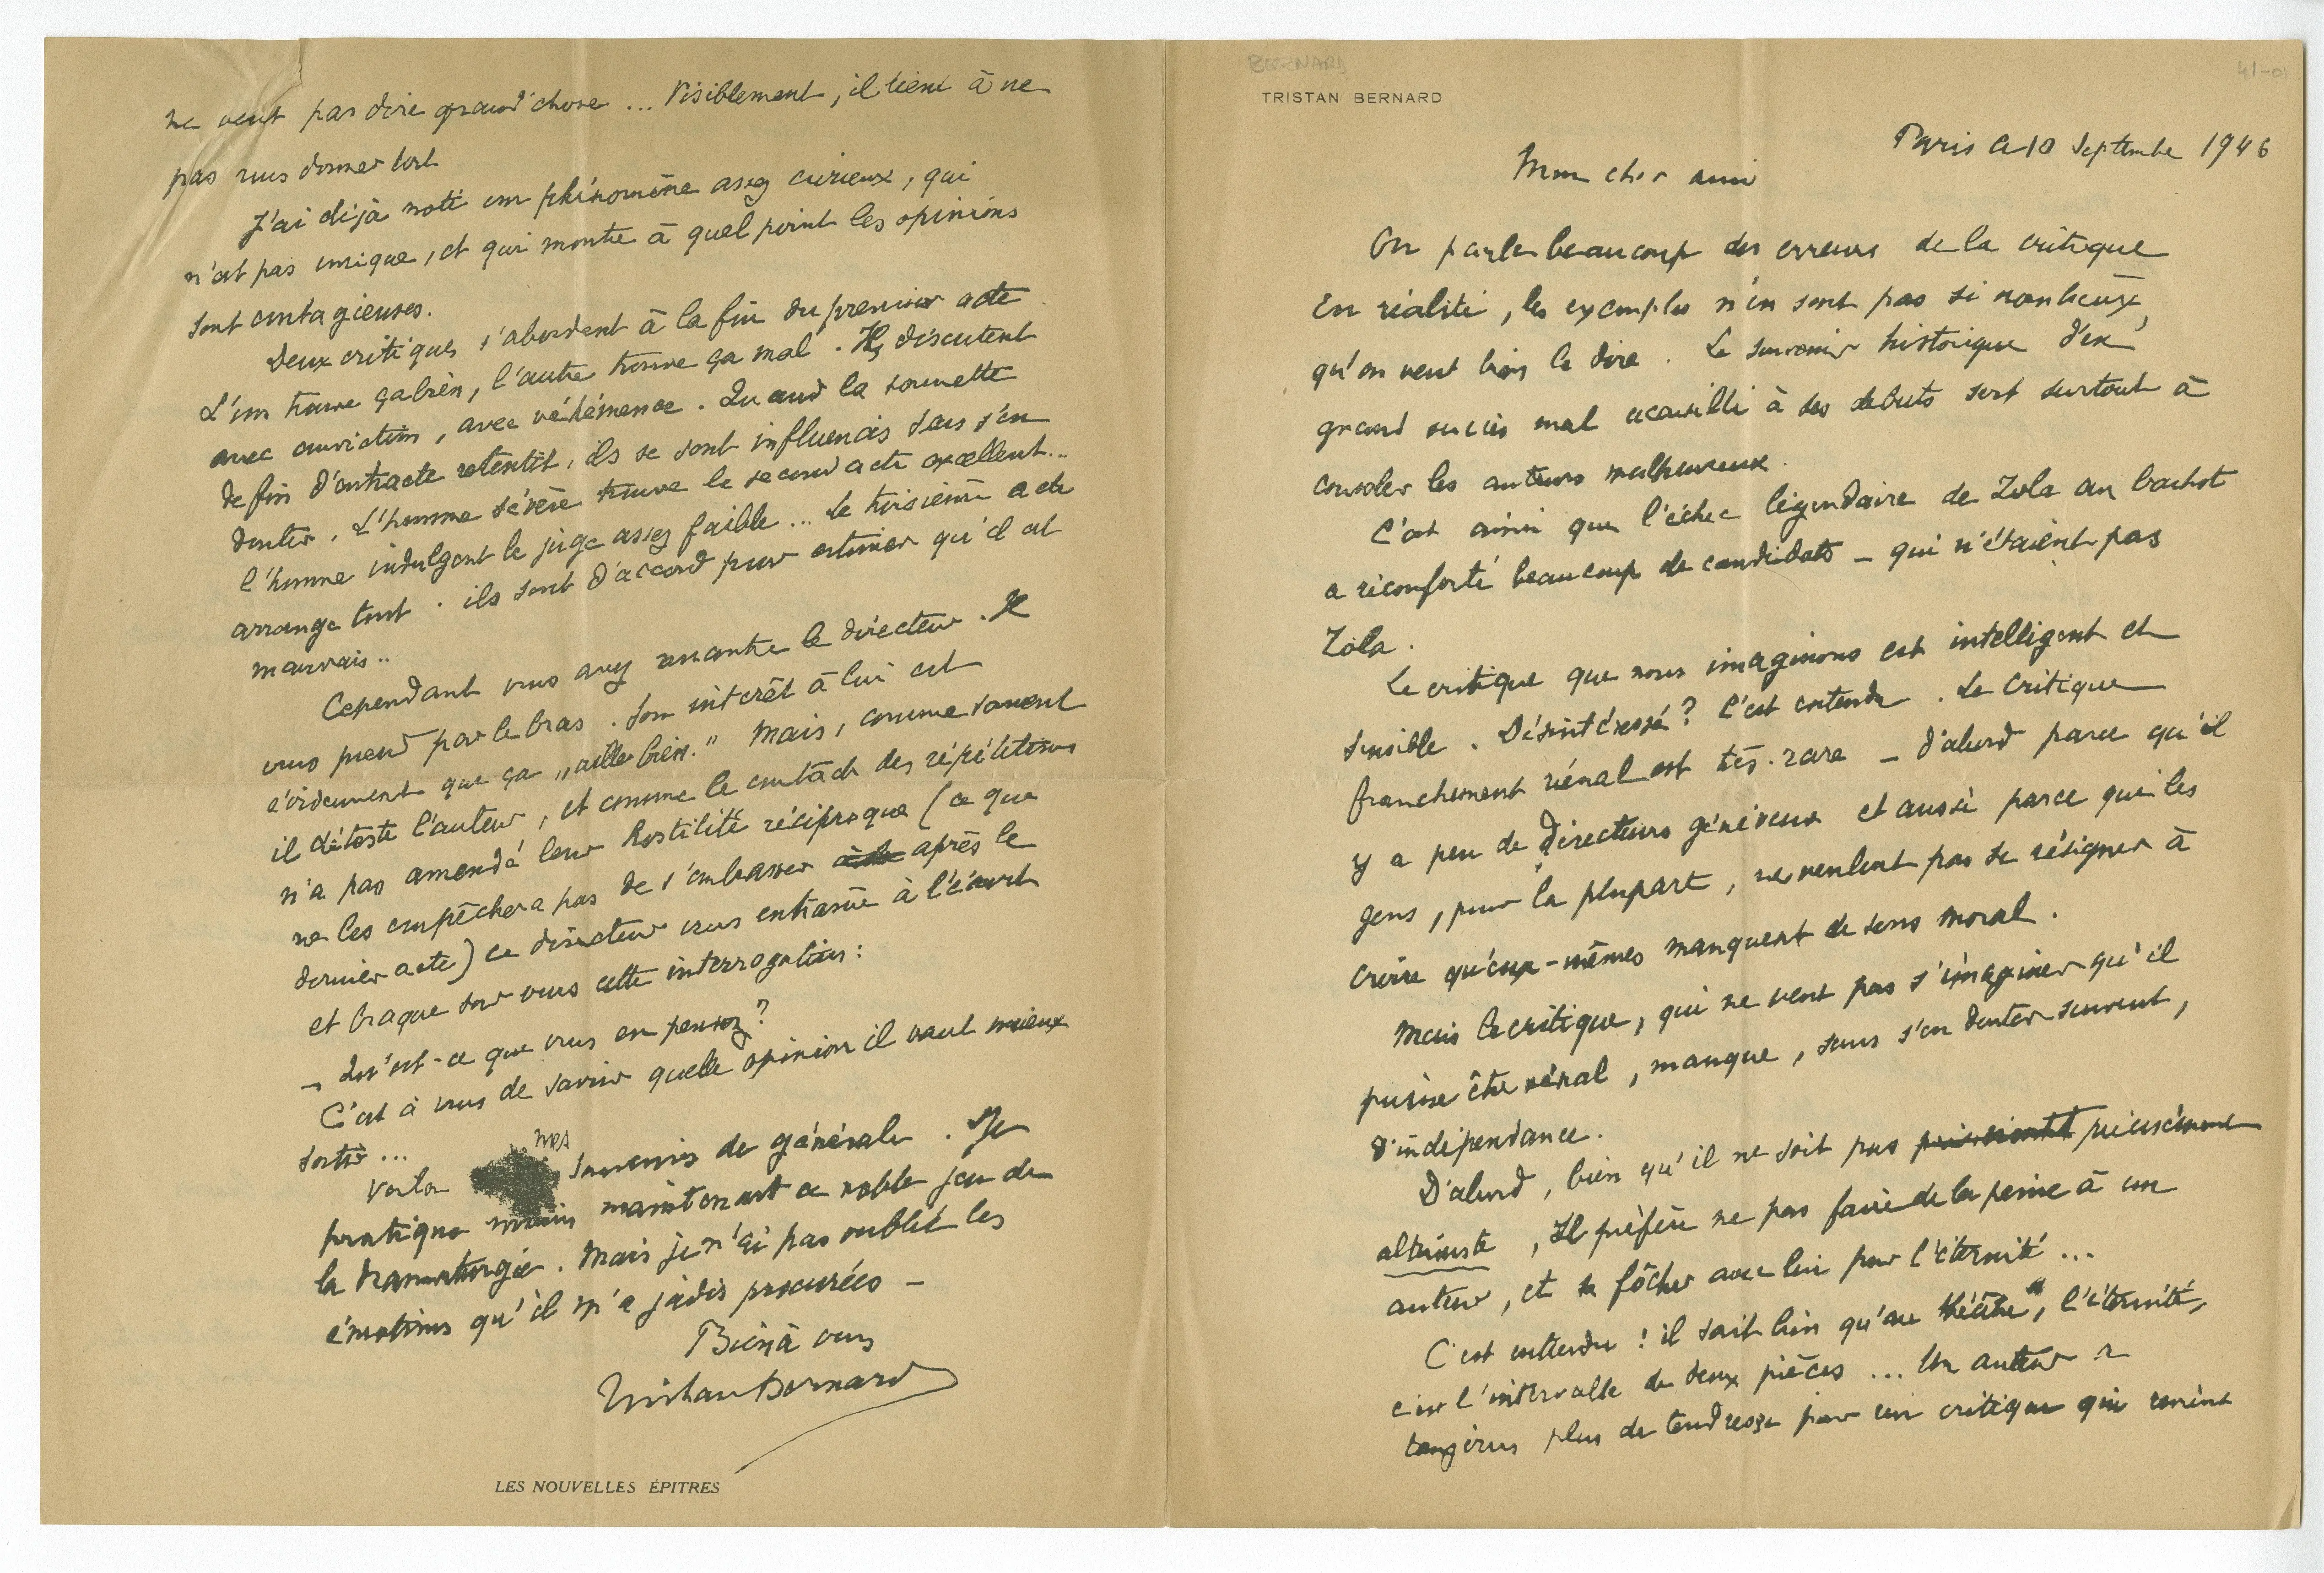 BERNARD
41-01
TRISTAN BERNARD
Paris ce 10 Septembre 1946
Mon cher ami
On parle beaucoup des erreurs de la critique
En réalité, les exemples n'en sont pas si nombreux,
qu'on veut bien le dire. Le souvenir historique d'un
grand succès mal accueilli à ses débuts sert surtout à
consoler les auteurs malheureux.
C'est ainsi que l'échec légendaire de Zola au bachot
a réconforté beaucoup de candidats – qui n'étaient pas
Zola.
Le critique que nous imaginons est intelligent et
sensible. Désintéressé? C'est entendu. Le critique
franchement vénal est très rare – d'abord parce qu'il
y a peu de directeurs généreux et aussi parce que les
gens, pour la plupart, ne veulent pas se résigner à
croire qu'eux-mêmes manquent de sens moral.
Mais le critique, qui ne veut pas s'imaginer qu'il
puisse être vénal, manque, sans s'en douter souvent,
d'indépendance.
D'abord, bien qu'il ne soit pas précisément
altruiste, Il préfère ne pas faire de la peine à un
auteur, et se fâcher avec lui pour l'éternité...
C'est entendu! il sait bien qu'au théâtre, l'éternité,
c'est l'intervalle de deux pièces... Un auteur a
toujours plus de tendresse pour un critique qui revient
ne veut pas dire grand'chose... Visiblement, il tient à ne
pas vous donner tort
J'ai déjà noté un phénomène assez curieux, qui
n'est pas unique, et qui montre à quel point les opinions
sont contagieuses.
Deux critiques s'abordent à la fin du premier acte
L'un trouve ça bien, l'autre trouve ça mal. Ils discutent
avec conviction, avec véhémence. Quand la sonnette
de fin d'entracte retentit, ils se sont influencés sans s'en
douter. L'homme sévère trouve le second acte excellent...
l'homme indulgent le juge assez faible... Le troisième acte
arrange tout. ils sont d'accord pour estimer qu'il est
mauvais..
Cependant vous avez rencontré le directeur. Il
vous prend par le bras. Son intérêt à lui est
évidemment que ça „aille bien." Mais, comme souvent
il déteste l'auteur, et comme le contact des répétitions
n'a pas amendé leur hostilité réciproque (ce que
ne les empêchera pas de s'embrasser après le
dernier acte) ce directeur vous entraîne à l'écart
et braque sur vous cette interrogation:
– Qu'est-ce que vous en pensez?
C'est à vous de savoir quelle opinion il vaut mieux
sortir...
Voilà mes souvenirs de générale. Je
pratique moins maintenant ce noble jeu de
la dramaturgie. Mais je n'ai pas oublié les
émotions qu'il m'a jadis procurées –
Bien à vous
Tristan Bernard
LES NOUVELLES ÉPITRES